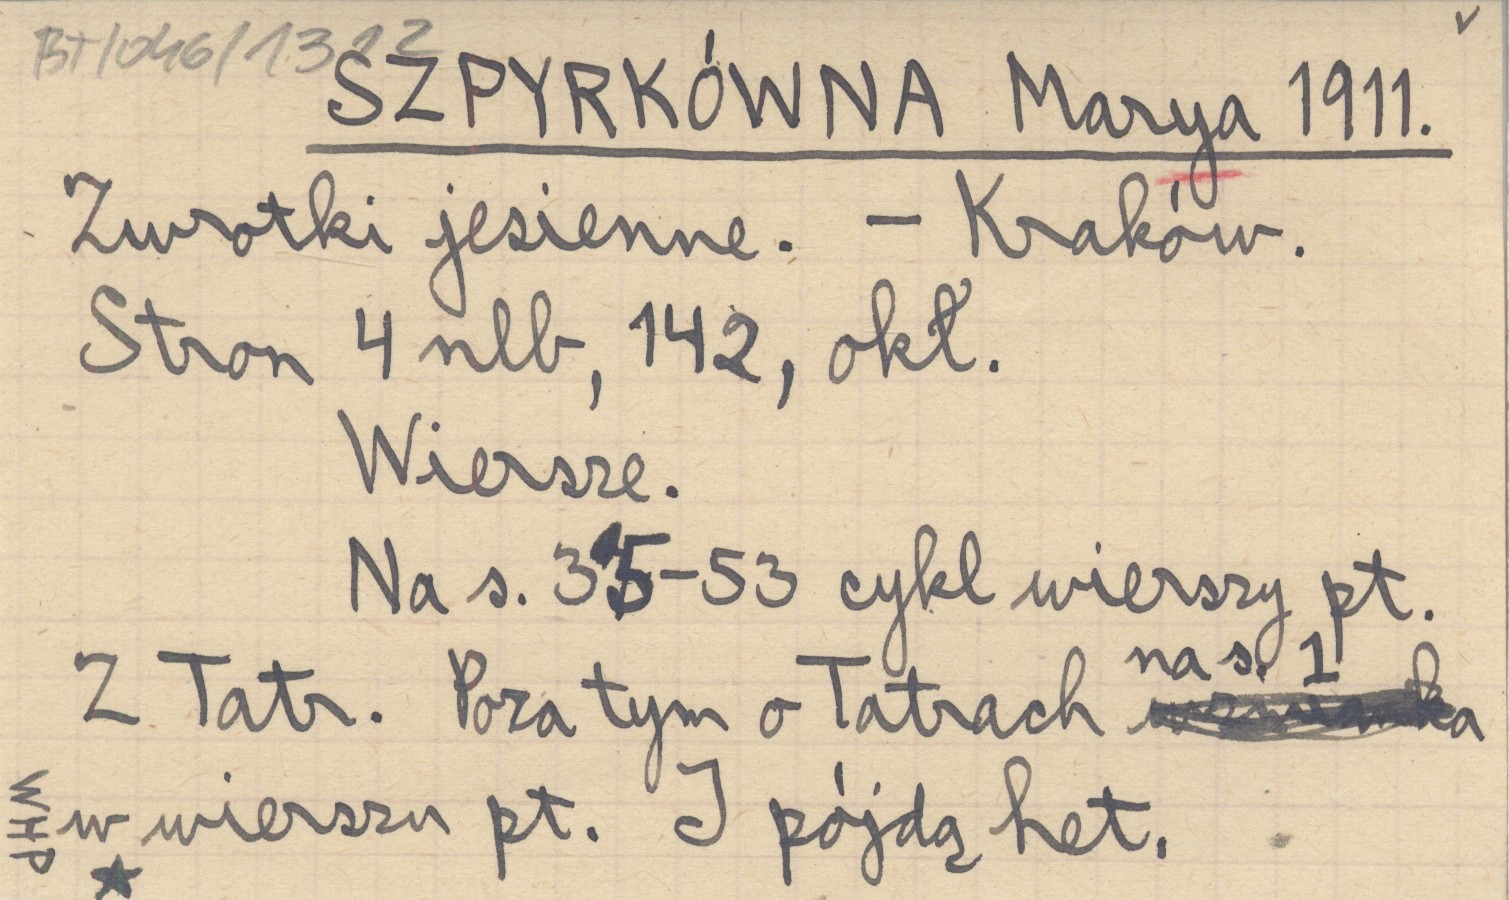 BT/046/1312
v
SZPYRKÓWNA Marya 1911.
Zwrotki jesienne. – Kraków.
Stron 4 nlb, 142, okł.
Wiersze.
Na s. 35–53 cykl wierszy pt.
Z Tatr. Poza tym o Tatrach na s. 1
w wierszu pt. I pójdą het.
WHP